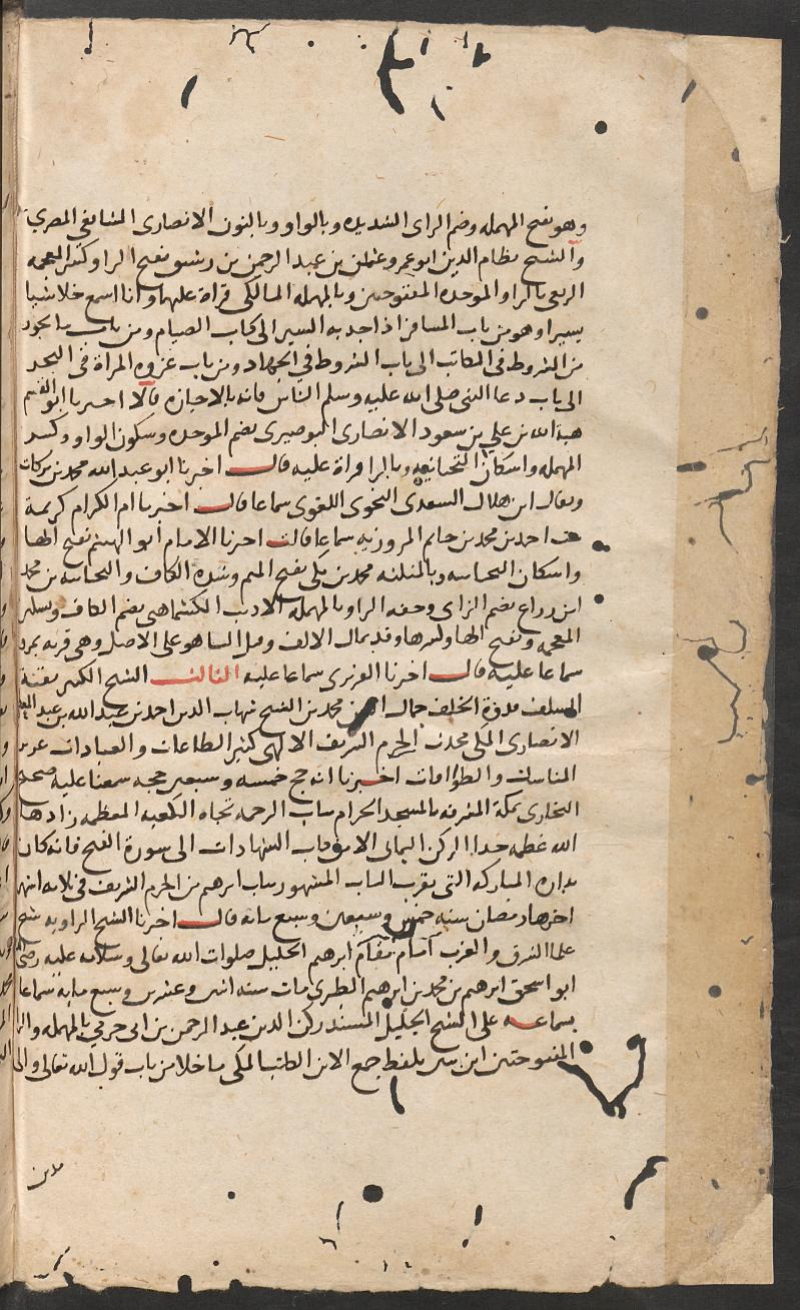 وهو بفتح المهمله وضم الراى الشديده وبالواو وبالنون الانصارى الشافعى المصرى
والشيخ نظام الدين ابو عمرو عثمن بن عبد الرحمن بن رشيق بفتح الرا وكسر المعجمه
الربعى بالرا والموحده المفتوحتين وبالمهمله المالكى قراة عليهما وانا اسمع خلا شيا
يسيرا وهو من باب المسافر اذا جد به السير الى كتاب الصيام ومن باب ما يجوز
من الشروط فى المكاتب الى باب الشروط فى الجهاد ومن باب غزوه المراة فى البحر
الى باب دعا النبى صلى الله عليه وسلم الناس فانه بالاجازه قالا اخبرنا ابو القسم
هبة الله بن علي بن سعود الانصارى البوصيرى بضم الموحده وسكون الواو وكسر
المهمله واسكان التحتانيه وبالرا قراة عليه قال اخبرنا ابو عبد الله محمد بن بركات
ابن هلال السعدى النحوى اللغوى سماعا قال اخبرتنا ام الكرام كريمة
بنت احمد بن محمد بن حاتم المروزيه سماعا قالت اخبرنا الامام ابو الهيثم بفتح الها
واسكان التحتانيه وبالمثلثه محمد بن مكى بفتح الميم وشدة الكاف والتحتانيه بن محمد
ابن زراع بضم الزاى وخفه الرا وبالمهمله الاديب الكشماهنى بضم الكاف وسكون
المعجمه وبفتح الها وكسرها وقد يمال الالف وقيل اليا هو على الاصل وهى قريه بمرو
سماعا عليه قال اخبرنا الفربرى سماعا عليه الثالث الشيخ الكبير بقية
السلف قدوة الخلف جمال الدين محمد بن الشيخ شهاب الدين احمد بن عبد الله بن عبد المعطى
الانصارى المكى محدث الحرم الشريف الالهى كثير الطاعات والعبادات عزيز
المناسك والطوافات اخبرنا انه حج خمسه وسبعين حجه سمعنا عليه صحيح
البخارى بمكة المشرفه بالمسجد الحرام بباب الرحمه تجاه الكعبه المعظمه زادها
الله عظمه حذا الركن اليمانى الا من كتاب الشهادات الى سورة الفتح فانه كان
بداره المباركه التى بقرب الباب المشهور بباب ابرهيم من الحرم الشريف فى ثلاثه اشهر
اخرها رمضان سنه خمس وسبعين وسبع مائه قال اخبرنا الشيخ الراويه شيخ
علما الشرق والغرب امام مقام ابرهيم الخليل صلوات الله تعالى وسلامه عليه رضى الدين
ابو اسحق ابرهيم بن محمد بن ابرهيم الطبرى مات سنه اثنين وعشرين وسبع مايه سماعا
بسماعه على الشيخ الجليل المسند ركن الدين عبد الرحمن بن ابى حرمى بالمهمله والرا
المفتوحتين ابن بنين بلفظ جمع الابن الكاتب المكى ما خلا من باب قول الله تعالى والى
مدين